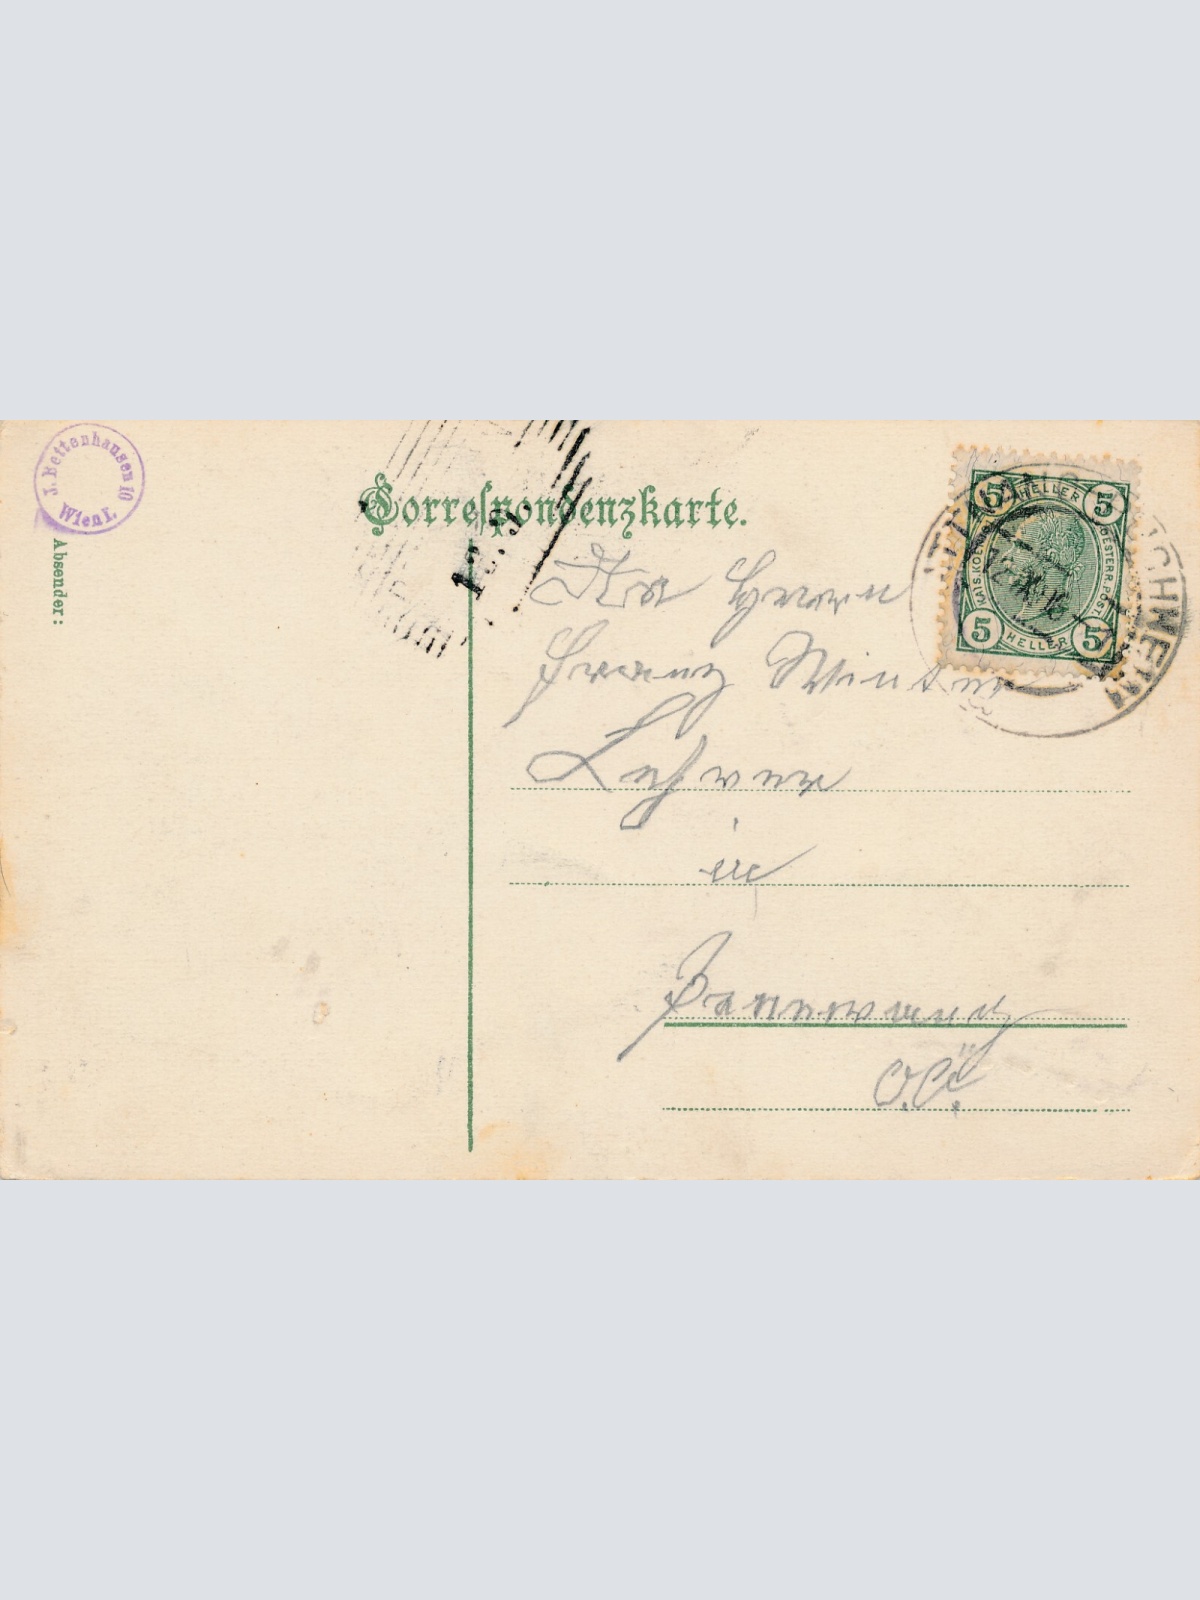 J. Bettenhausen 10
Wien I.
Absender:
Correspondenzkarte.
5 HELLER 5
KAIS. KOEN. OESTERR. POST
5 HELLER 5
Herrn
Franz Winter
Lehrer
in
O.Ö.